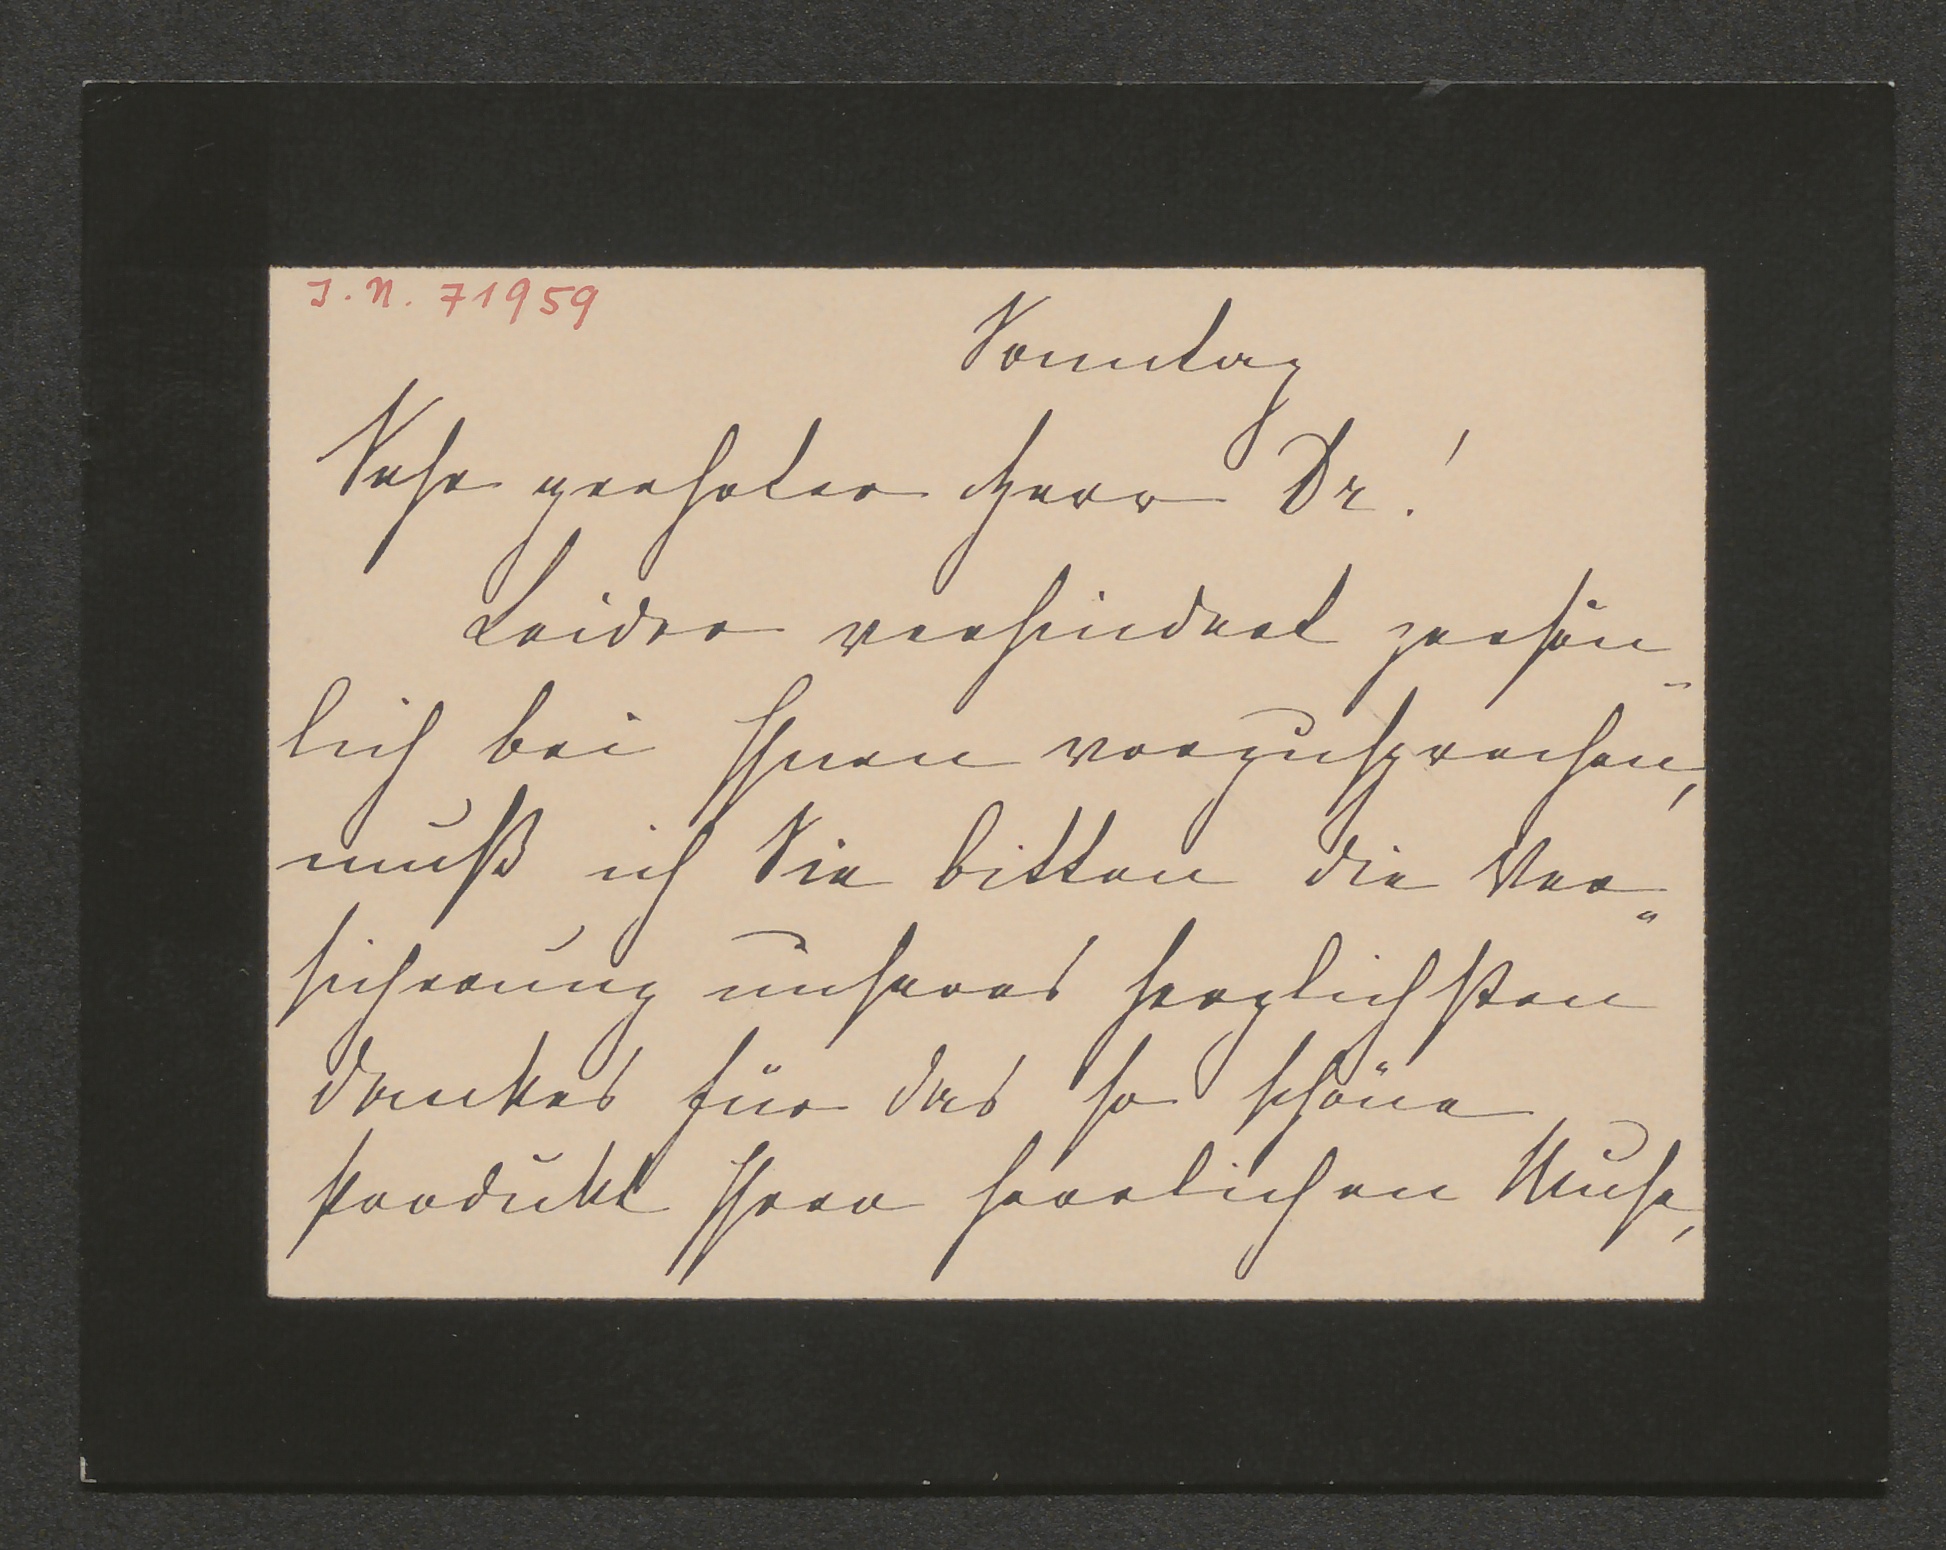 J. N. 71959
Sonntag
Sehr geehrter Herr Dr.!
Leider verhindert persön-
lich bei Ihnen vorzusprechen,
muß ich Sie bitten die Ver-
sicherung unseres herzlichsten
Dankes für das so schöne
Produkt Ihrer herrlichen Muse,